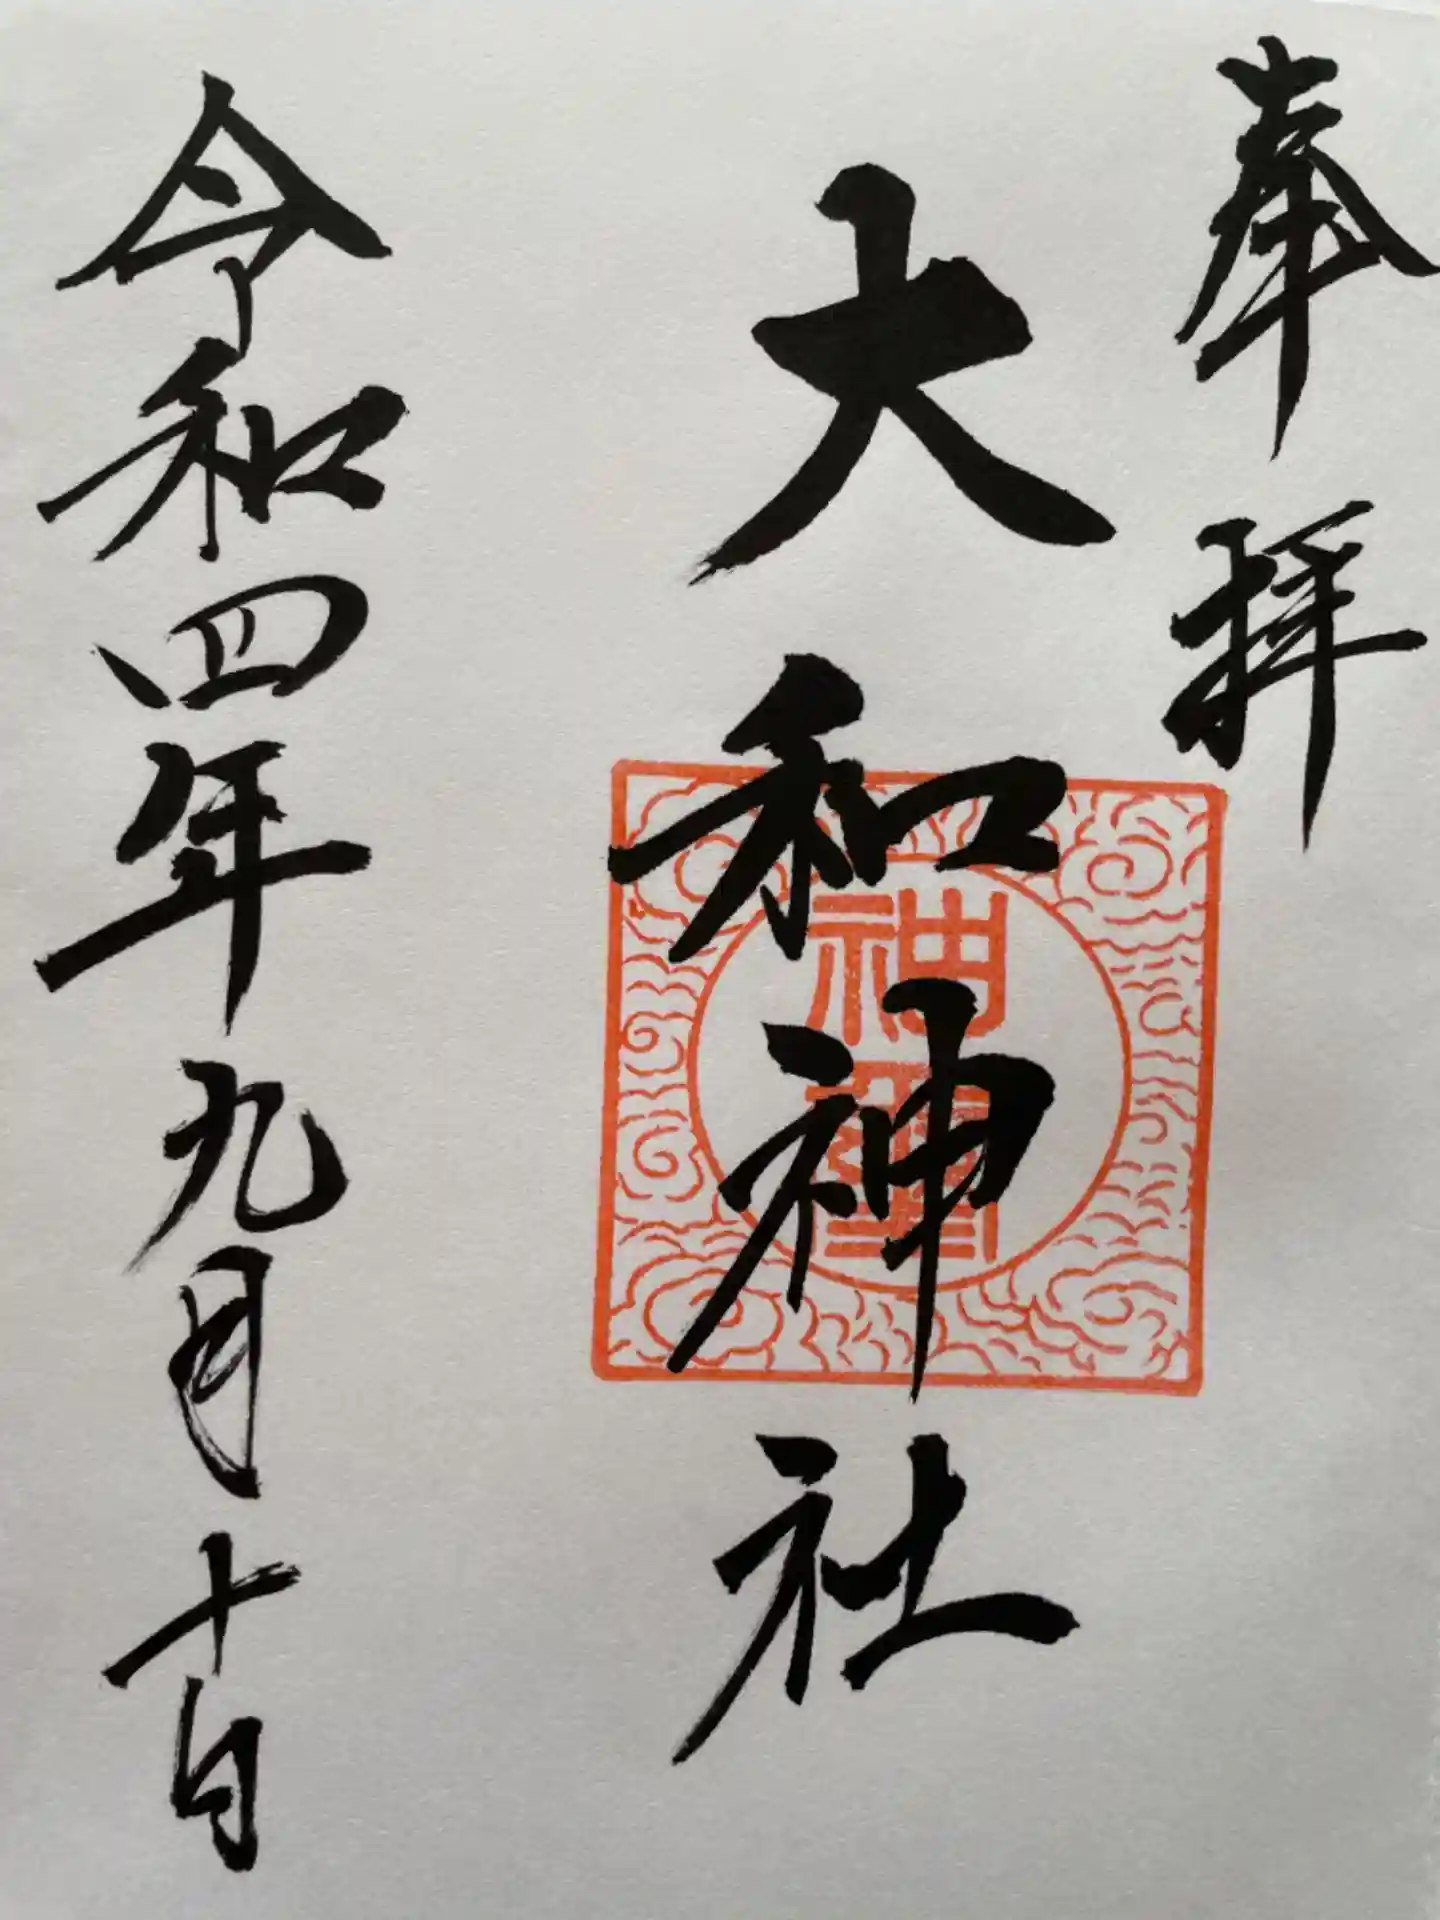 奉拝
大和神社
令和四年九月十日